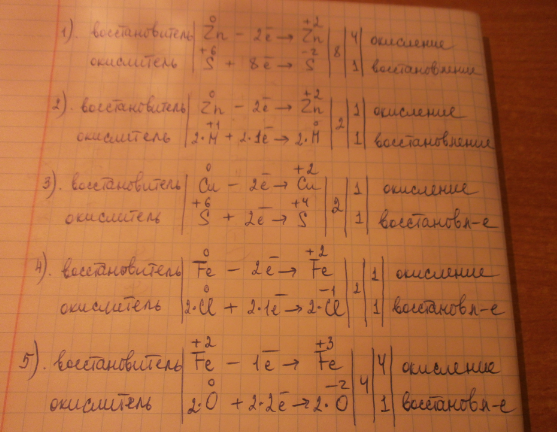 1). восстановитель | Zn⁰ - 2ē → Zn⁺² | 8 | 4 | окисление
окислитель | S⁺⁶ + 8ē → S⁻² | 1 | восстановление
2). восстановитель | Zn⁰ - 2ē → Zn⁺² | 2 | 1 | окисление
окислитель | 2·H⁺¹ + 2·1ē → 2·H⁰ | 1 | восстановление
3). восстановитель | Cu⁰ - 2ē → Cu⁺² | 2 | 1 | окисление
окислитель | S⁺⁶ + 2ē → S⁺⁴ | 1 | восстановл-е
4). восстановитель | Fe⁰ - 2ē → Fe⁺² | 1 | окисление
окислитель | 2·Cl⁰ + 2·1ē → 2·Cl⁻¹ | 1 | восстановл-е
5). восстановитель | Fe⁺² - 1ē → Fe⁺³ | 4 | 4 | окисление
окислитель | 2·O⁰ + 2·2ē → 2·O⁻² | 1 | восстановл-е